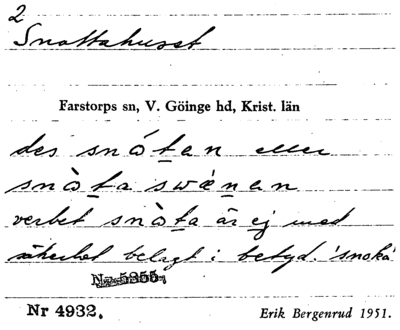 2
Snattahuset
Farstorps sn, V. Göinge hd, Krist. län
des snåtan eller
snàta swænan
verbet snàta är ej med
säkerhet belagt i betyd. 'snoka'
Nr 5355.
Nr 4932.
Erik Bergenrud 1951.